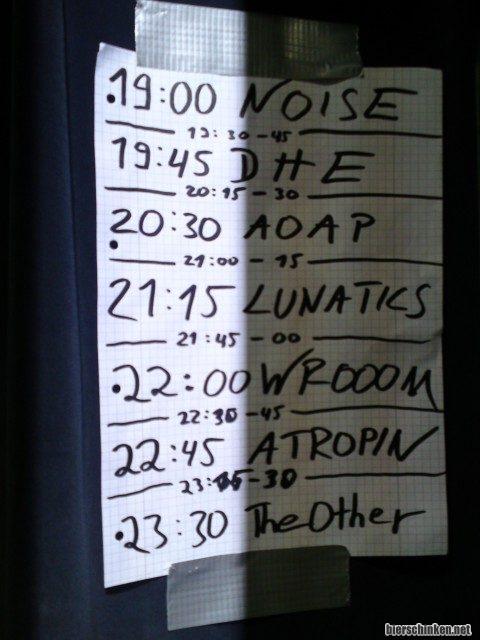 .19:00 NOISE
19:30-45
19:45 DHE
20:15-30
.20:30 AOAP
21:00-15
21:15 LUNATICS
21:45-00
.22:00 WROOOM
22:30-45
22:45 ATROPIN
23:15-30
.23:30 The Other
bierschinken.net